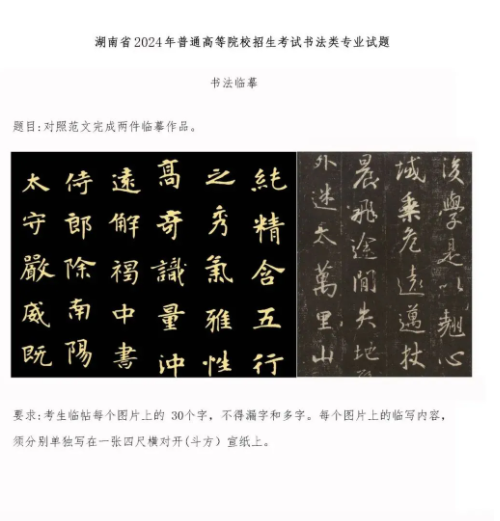 湖南省2024年普通高等院校招生考试书法类专业试题
书法临摹
题目:对照范文完成两件临摹作品。
純精含五行
之秀氣雅性
髙奇識量沖
遠解褐中書
侍郎除南陽
太守嚴威既
學是以翹心
域乘危遠邁杖
晨飛途間失地
外迷天萬里山
要求:考生临帖每个图片上的 30个字，不得漏字和多字。每个图片上的临写内容，
须分别单独写在一张四尺横对开(斗方）宣纸上。